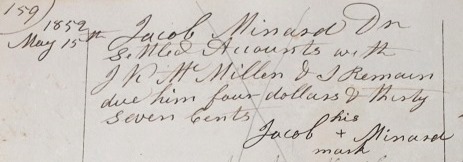 159)
1852
May 15th
Jacob Minard Dr
Settled Accounts with
J W McMillen & I Remain
due him four dollars & thirty
Seven Cents
his
Jacob + Minard
mark